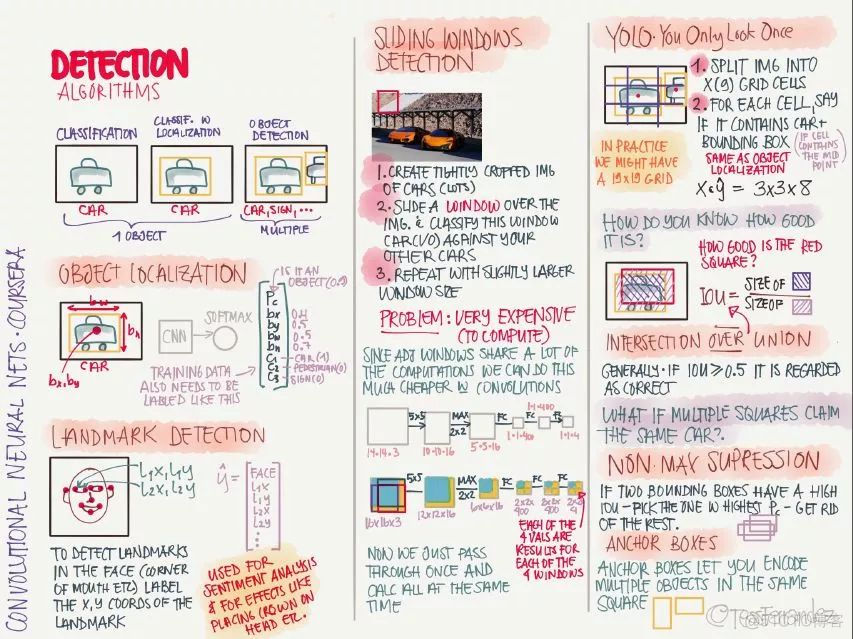 CONVOLUTIONAL NEURAL NETS · COURSERA
DETECTION
ALGORITHMS
CLASSIFICATION
CLASSIF. W
LOCALIZATION
OBJECT
DETECTION
CAR
CAR
CAR, SIGN, ...
1 OBJECT
MULTIPLE
OBJECT LOCALIZATION
bw
bh
bx,by
CAR
CNN
SOFTMAX
IS IT AN
OBJECT (0.1)
Pc
bx 0.4
by 0.5
bw 0.5
bh 0.7
C1 - CAR (1)
C2 - PEDESTRIAN(0)
C3 - SIGN(0)
TRAINING DATA
ALSO NEEDS TO BE
LABLED LIKE THIS
LANDMARK DETECTION
l1x, l1y
l2x, l2y
ŷ =
FACE
l1x
l1y
l2x
l2y
⋮
TO DETECT LANDMARKS
IN THE FACE (CORNER
OF MOUTH ETC) LABEL
THE X,Y COORDS OF THE
LANDMARK
USED FOR
SENTIMENT ANALYSIS
& FOR EFFECTS LIKE
PLACING CROWN ON
HEAD ETC.
SLIDING WINDOWS
DETECTION
1. CREATE TIGHTLY CROPPED IMG
OF CARS (LOTS)
2. SLIDE A WINDOW OVER THE
IMG. & CLASSIFY THIS WINDOW
CAR(1/0) AGAINST YOUR
OTHER CARS
3. REPEAT WITH SLIGHTLY LARGER
WINDOW SIZE
PROBLEM: VERY EXPENSIVE
(TO COMPUTE)
SINCE ADJ WINDOWS SHARE A LOT OF
THE COMPUTATIONS WE CAN DO THIS
MUCH CHEAPER W CONVOLUTIONS
5x5 MAX 2x2 FC FC FC
14·14·3 10·10·16 5·5·16 1·1·400 1·1·400 1·1·4
5x5 MAX 2x2 FC FC FC
16x16x3 12x12x16 6x6x16 2x2x400 2x2x400
EACH OF THE
4 VALS ARE
RESULTS FOR
EACH OF THE
4 WINDOWS
NOW WE JUST PASS
THROUGH ONCE AND
CALC ALL AT THE SAME
TIME
YOLO · You Only Look Once
1. SPLIT IMG INTO
X(9) GRID CELLS
2. FOR EACH CELL, SAY
IF IT CONTAINS CAR+
BOUNDING BOX (IF CELL
CONTAINS
THE MID
POINT)
IN PRACTICE
WE MIGHT HAVE
A 19x19 GRID
SAME AS OBJECT
LOCALIZATION
X&ŷ = 3x3x8
HOW DO YOU KNOW HOW GOOD
IT IS?
HOW GOOD IS THE RED
SQUARE?
IOU = SIZE OF
SIZE OF
INTERSECTION OVER UNION
GENERALLY · IF IOU ≥ 0.5 IT IS REGARDED
AS CORRECT
WHAT IF MULTIPLE SQUARES CLAIM
THE SAME CAR?
NON·MAX SUPRESSION
IF TWO BOUNDING BOXES HAVE A HIGH
IOU - PICK THE ONE W HIGHEST Pc - GET RID
OF THE REST.
ANCHOR BOXES
ANCHOR BOXES LET YOU ENCODE
MULTIPLE OBJECTS IN THE SAME
SQUARE